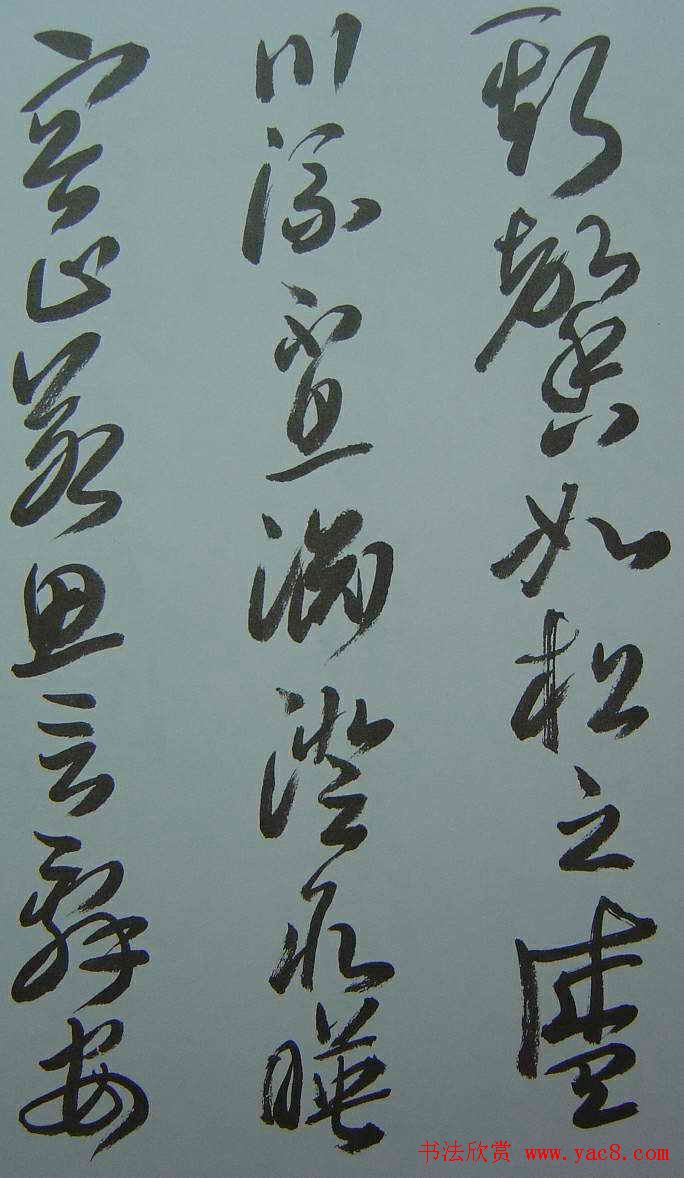 斯馨如松之盛
川流不息渊澄取暎
容止若思言辞安
书法欣赏 www.yac8.com